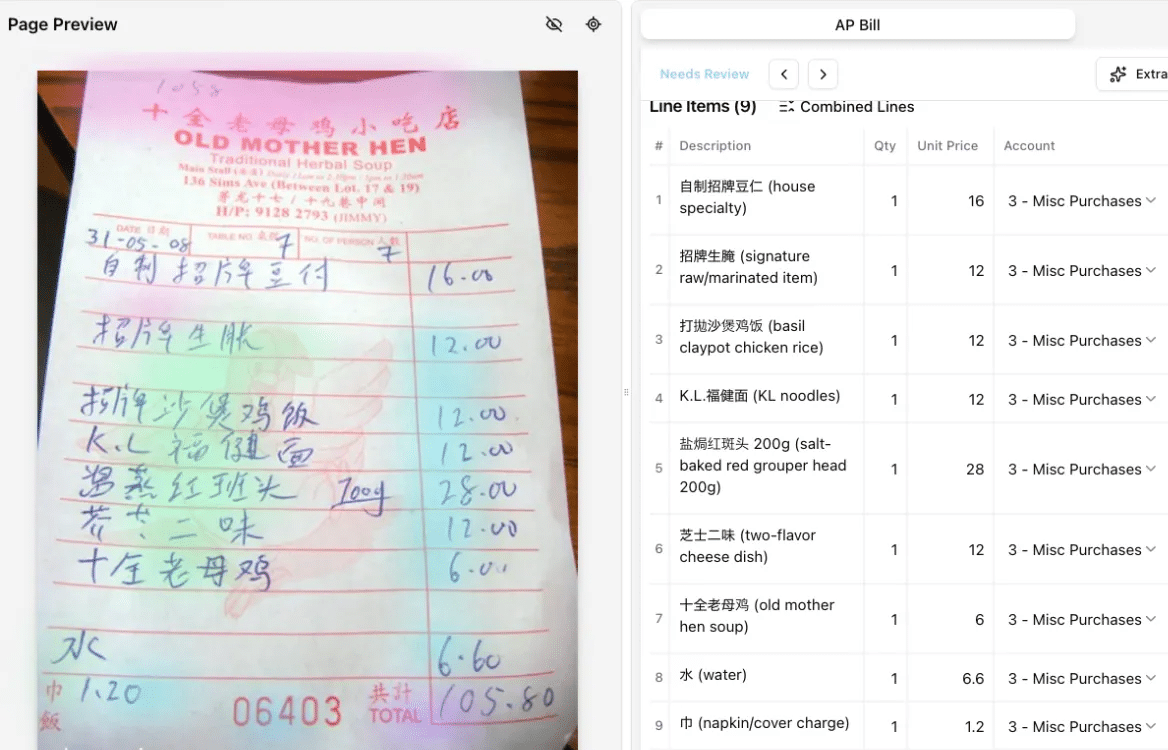 Page Preview
1058
十全老母鸡小吃店
OLD MOTHER HEN
Traditional Herbal Soup
136 Sims Ave (Between Lot. 17 & 19)
芽龙十七 / 十九巷中间
H/P: 9128 2793 (JIMMY)
DATE 日期 31-05-08 TABLE NO. 7 NO. OF PERSON 人数 7
自制招牌豆付 16.00
招牌生 12.00
招牌沙煲鸡饭 12.00
K.L 福健面 12.00
蒸红班头 700g 28.00
二味 12.00
十全老母鸡 6.00
水 6.60
巾 1.20
飯
06403
共計 TOTAL 105.80
AP Bill
Needs Review
Extra
Line Items (9) Combined Lines
# Description Qty Unit Price Account
1 自制招牌豆仁 (house specialty) 1 16 3 - Misc Purchases
2 招牌生腌 (signature raw/marinated item) 1 12 3 - Misc Purchases
3 打抛沙煲鸡饭 (basil claypot chicken rice) 1 12 3 - Misc Purchases
4 K.L.福健面 (KL noodles) 1 12 3 - Misc Purchases
5 盐焗红斑头 200g (salt-baked red grouper head 200g) 1 28 3 - Misc Purchases
6 芝士二味 (two-flavor cheese dish) 1 12 3 - Misc Purchases
7 十全老母鸡 (old mother hen soup) 1 6 3 - Misc Purchases
8 水 (water) 1 6.6 3 - Misc Purchases
9 巾 (napkin/cover charge) 1 1.2 3 - Misc Purchases